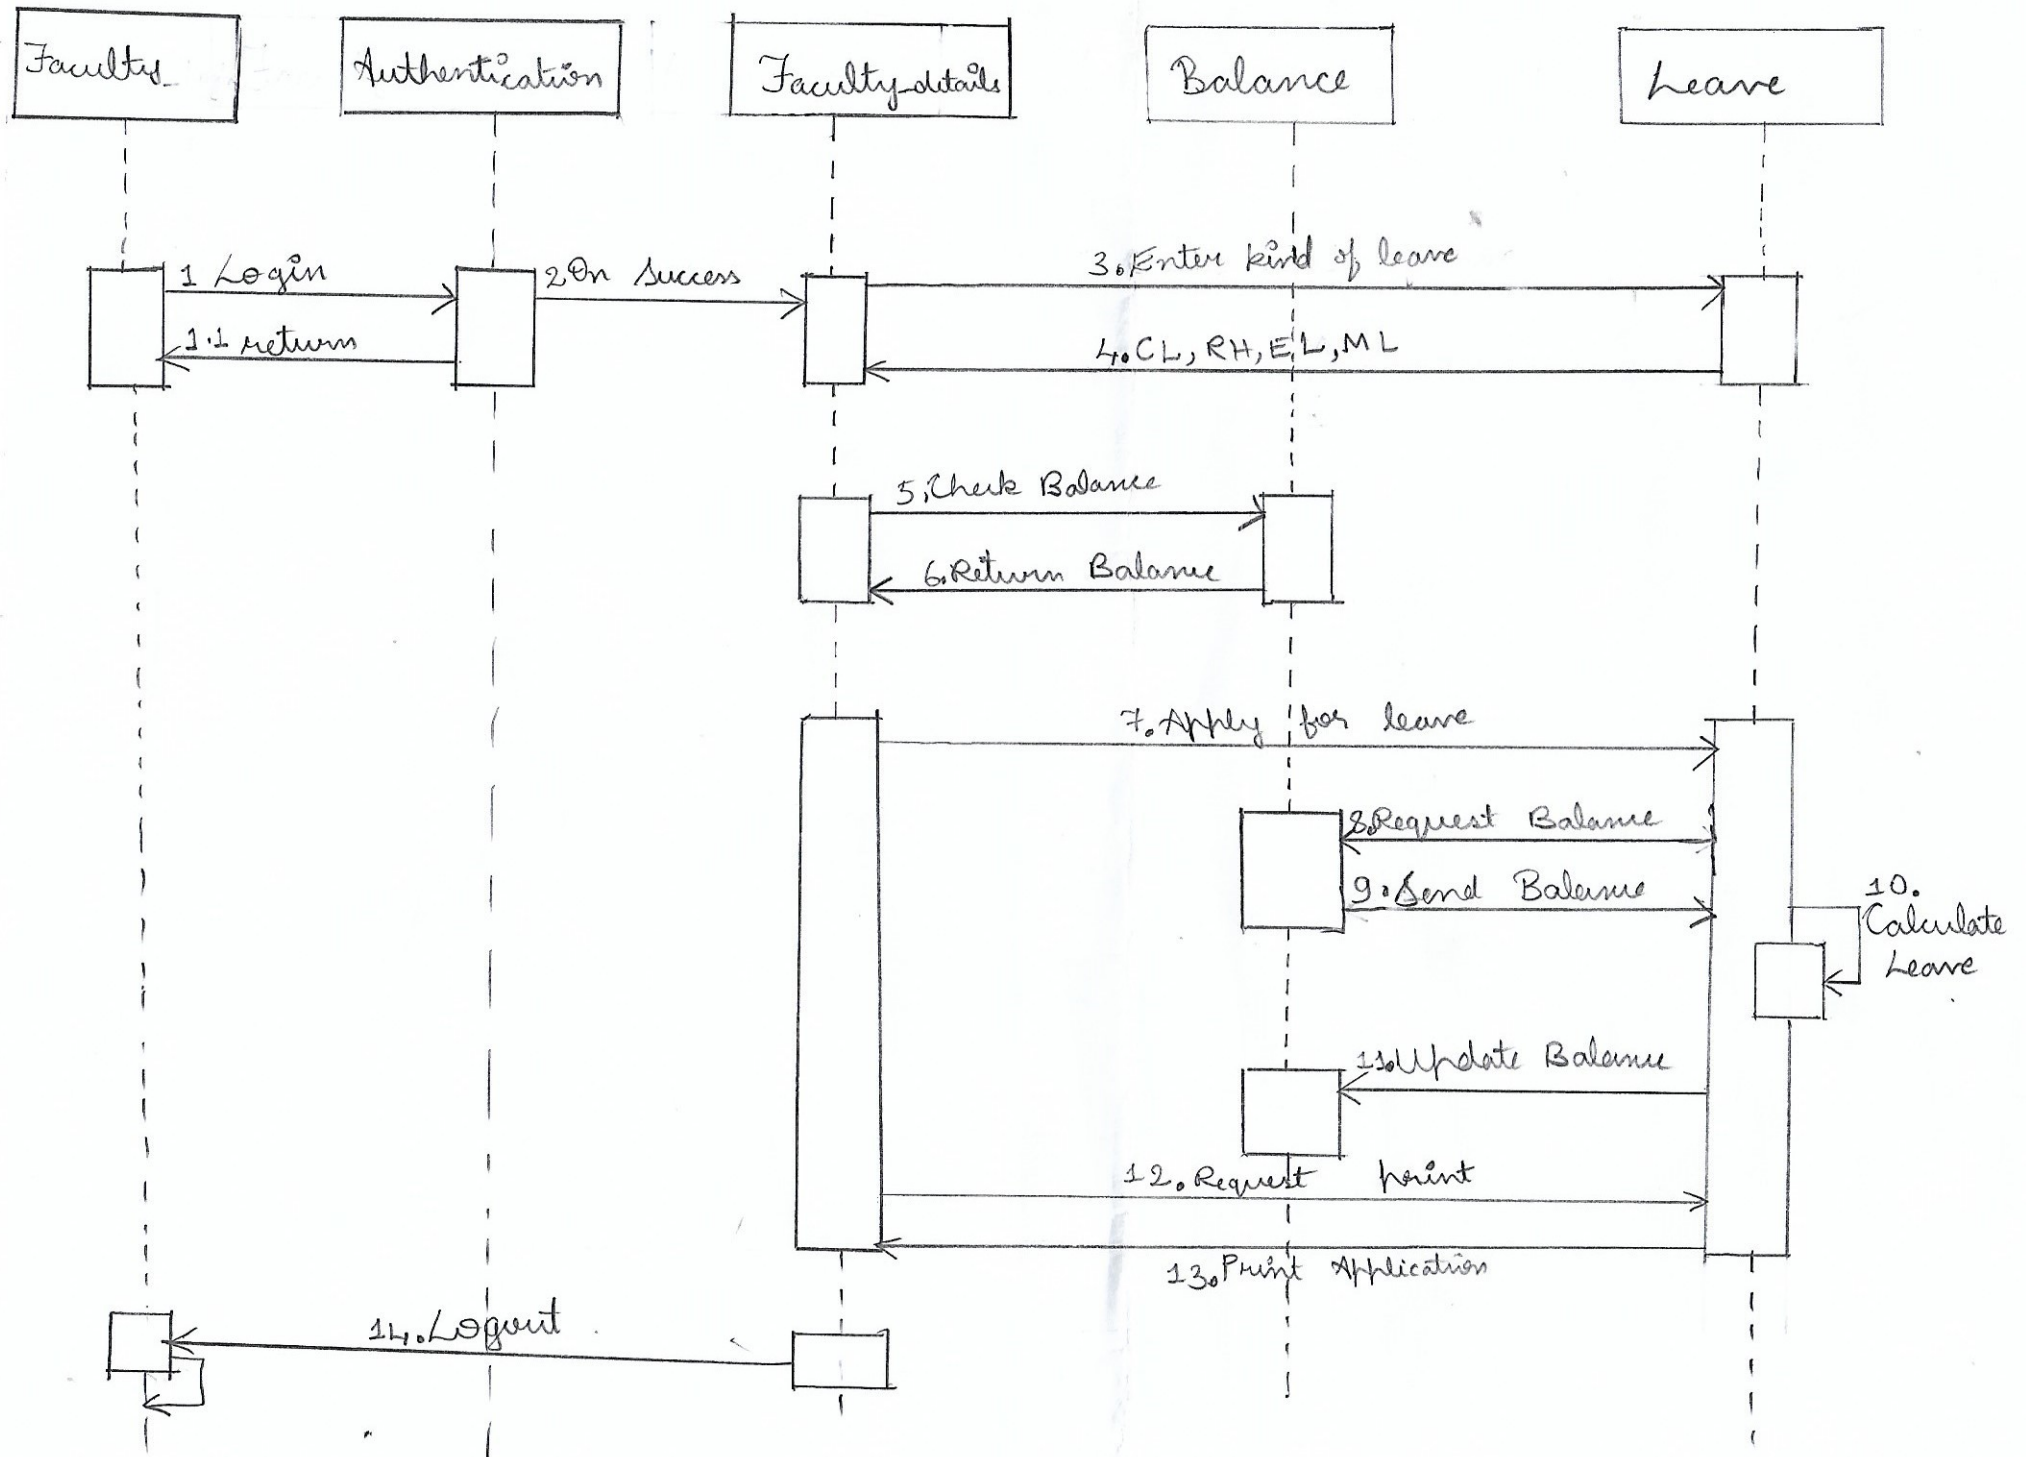 Faculty
Authentication
Faculty_details
Balance
Leave
1 Login
2 On Success
3. Enter kind of leave
1.1 return
4. CL, RH, EL, ML
5. Check Balance
6. Return Balance
7. Apply for leave
8. Request Balance
9. Send Balance
10.
Calculate
Leave
11. Update Balance
12. Request print
13. Print Application
14. Logout